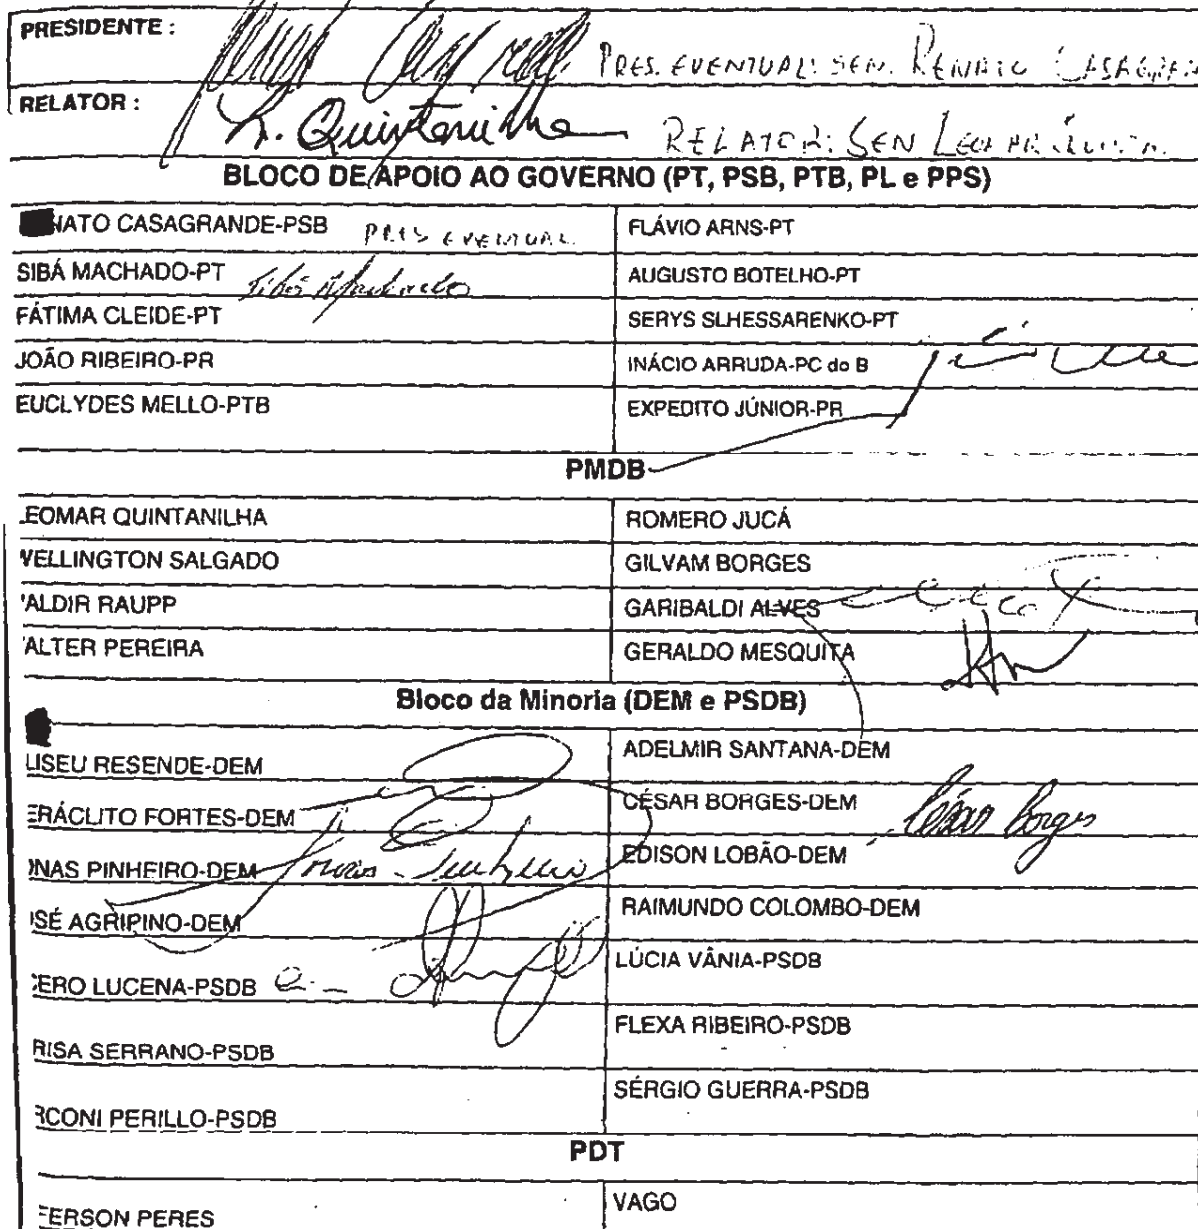 PRESIDENTE :
PRES. EVENTUAL: SEN. RENATO CASAGRAN
RELATOR :
L. Quintanilha RELATOR: SEN LEOMAR QUINTA
BLOCO DE APOIO AO GOVERNO (PT, PSB, PTB, PL e PPS)
NATO CASAGRANDE-PSB PRES EVENTUAL FLÁVIO ARNS-PT
SIBÁ MACHADO-PT Sibá Machado AUGUSTO BOTELHO-PT
FÁTIMA CLEIDE-PT SERYS SLHESSARENKO-PT
JOÃO RIBEIRO-PR INÁCIO ARRUDA-PC do B
EUCLYDES MELLO-PTB EXPEDITO JÚNIOR-PR
PMDB
EOMAR QUINTANILHA ROMERO JUCÁ
VELLINGTON SALGADO GILVAM BORGES
ALDIR RAUPP GARIBALDI ALVES
ALTER PEREIRA GERALDO MESQUITA
Bloco da Minoria (DEM e PSDB)
LISEU RESENDE-DEM ADELMIR SANTANA-DEM
ERÁCLITO FORTES-DEM CÉSAR BORGES-DEM César Borges
ONAS PINHEIRO-DEM Jonas Pinheiro EDISON LOBÃO-DEM
OSÉ AGRIPINO-DEM RAIMUNDO COLOMBO-DEM
CERO LUCENA-PSDB LÚCIA VÂNIA-PSDB
RISA SERRANO-PSDB FLEXA RIBEIRO-PSDB
RCONI PERILLO-PSDB SÉRGIO GUERRA-PSDB
PDT
FERSON PERES VAGO